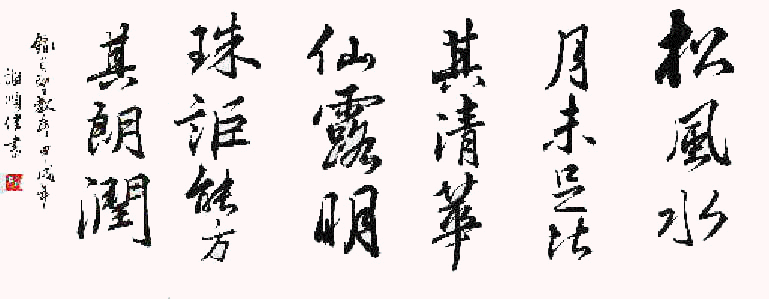 松風水
月未足比
其清華
仙露明
珠詎能方
其朗潤
聖教序甲戌年
書